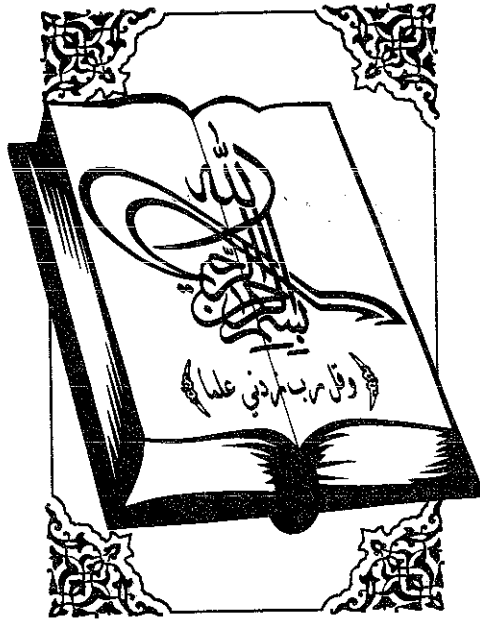 بسم الله الرحمن الرحيم
﴿وقل رب زدني علما﴾